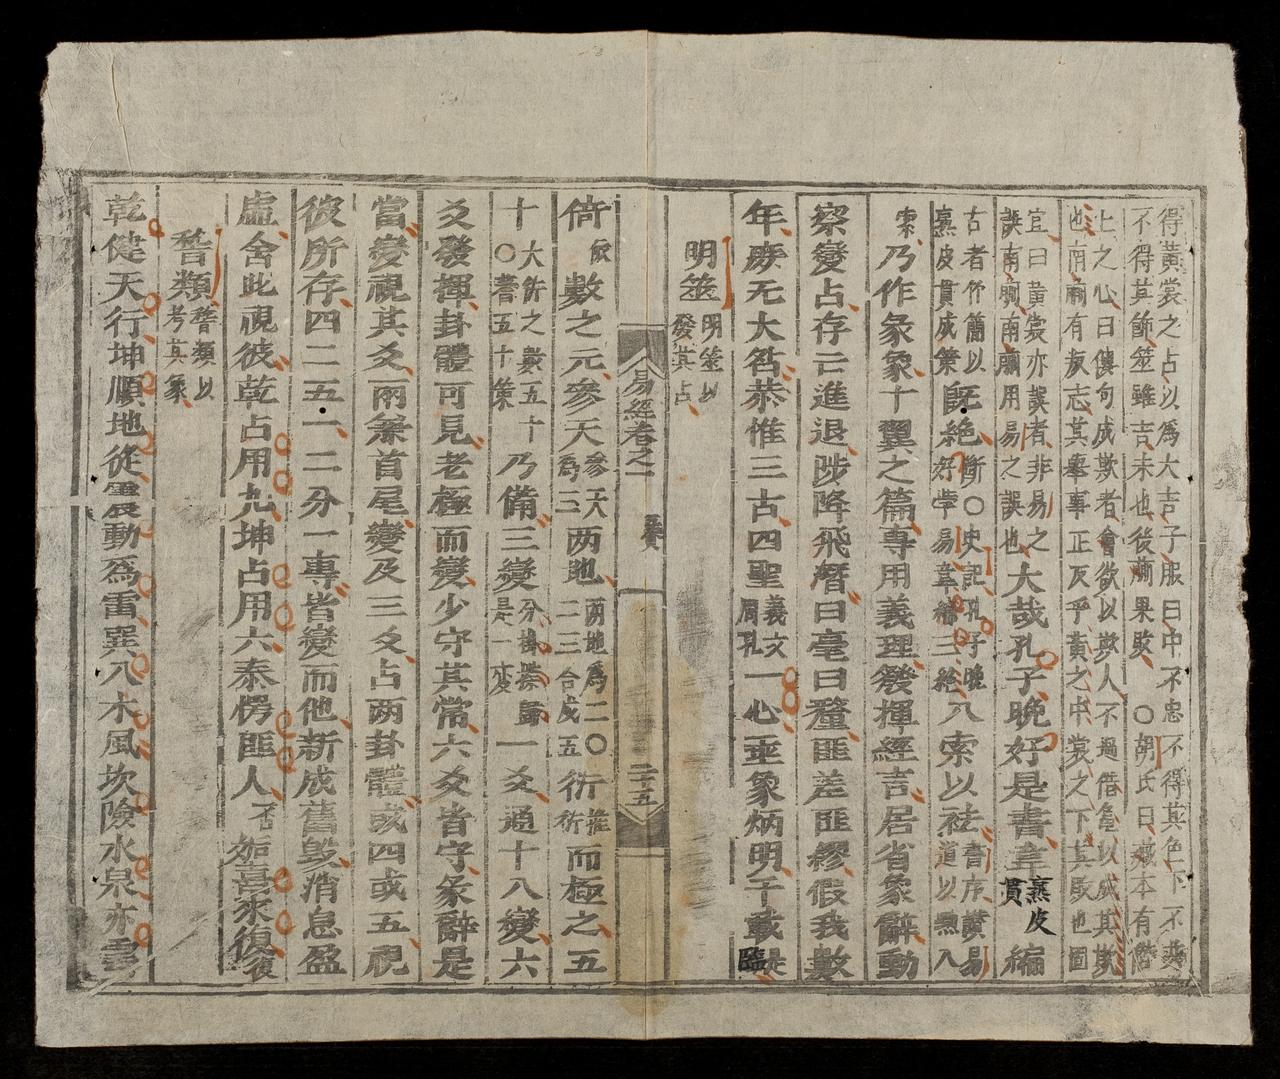 得黃裳之占以為大吉子服曰中不忠不得其色下不共
不得其飾筮雖吉未也後蒯果敗○胡氏曰蒯本有僭
上之心曰僂句成欺者會欲以欺人不過借龜以成其欺
也南蒯有叛志其舉事正反乎黃之中裳之下其敗也固
宜曰黃裳亦誤者非易之誤南蒯南蒯用易之誤也大哉孔子晚好是書韋熏皮貫編
古者竹簡以熏皮貫成策旣絶斷○史記孔子晚好學易韋編三絶八索以袪書序贊易道以黜八
索乃作彖象十翼之篇專用義理發揮經言居省象辭動
察變占存亡進退陟降飛潛曰毫曰釐匪差匪繆假我數
年庶无大咎恭惟三古四聖羲文周孔一心垂象炳明千載是臨
明筮明筮以發其占
易經卷之一 五贊 二十五
倚數之元參天參天為三兩地兩地為二○二三合成五衍推衍而極之五
十大衍之數五十○蓍五十策乃備三變分掛揲歸是一變一爻通十八變六
爻發揮卦體可見老極而變少守其常六爻皆守彖辭是
當變視其爻兩兼首尾變及三爻占兩卦體或四或五視
彼所存四二五一二分一專皆變而他新成舊毀消息盈
虛舍此視彼乾占用九坤占用六泰愕匪人否姤喜來復復
稽類稽類以考其象
乾健天行坤順地從震動為雷巽入木風坎險水泉亦雲